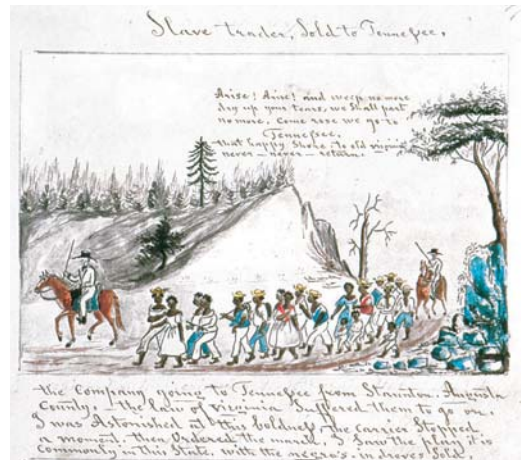 Slave trader, Sold to Tennessee,
Arise! Arise! and weep no more
dry up your tears, we shall part
no more. Come rose we go to
Tennessee,
that happy shore. to old virginia
never – never – return.
the Company going to Tennessee from Staunton. Augusta
County, – the law of virginia Suffered them to go on.
I was Astonished at this boldness the carrier Stopped
a moment. then Ordered the march. I Saw the play it is
Commonly in this State, with the negro's in droves Sold.